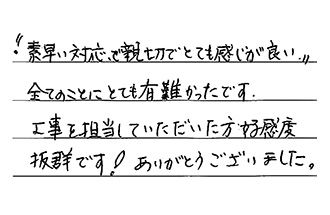 "素早い対応、で親切でとても感じが良い。"
全てのことにとても有難かったです.
工事を担当していただいた方好感度
抜群です！ありがとうございました。